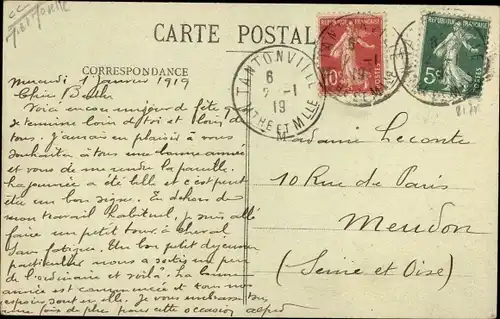 CARTE POSTALE
CORRESPONDANCE
TANTONVILLE
6
2 -1
19
MTHE ET MLLE
10c
POSTES
5c
POSTES
1 Janvier 1919
Voici encore un jour de fête que
je termine loin de toi et loin de
tous. J'aurai en plaisir à vous
souhaiter à tous une bonne année
et vous de me rendre la pareille.
La journée a été belle et c'est peut
être un bon signe. En dehors de
mon travail habituel, je suis allé
faire un petit tour à cheval
sans fatigue. Un bon petit dejeuner
particulier nous a sortis un peu
de l'ordinaire et voilà. La bonne
année est commencée et tous nos
espoirs sont en elle. Je vous embrasse
une fois de plus pour cette occasion
Alfred
Madame Leconte
10 Rue de Paris
Meudon
(Seine et Oise)